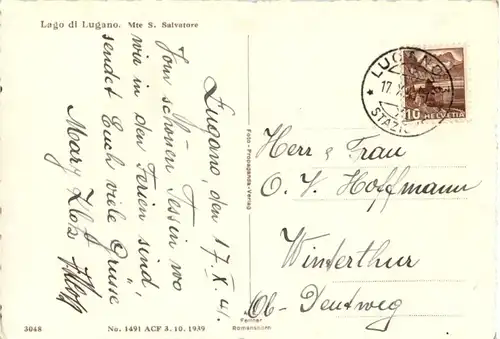 Lago di Lugano. Mte S. Salvatore
Lugano, den 17. X. 41.
Vom schönen Tessin wo
wir in den Ferien sind,
sendet Euch viele Grüsse
Mary Klotz
Foto - Propaganda-Verlag
Romanshorn
LUGANO
17. X.
STAZIO
10 HELVETIA
Herr & Frau
O. V. Hoffmann
Winterthur
Ob-Deutweg
3048
No. 1491 ACF 3. 10. 1939